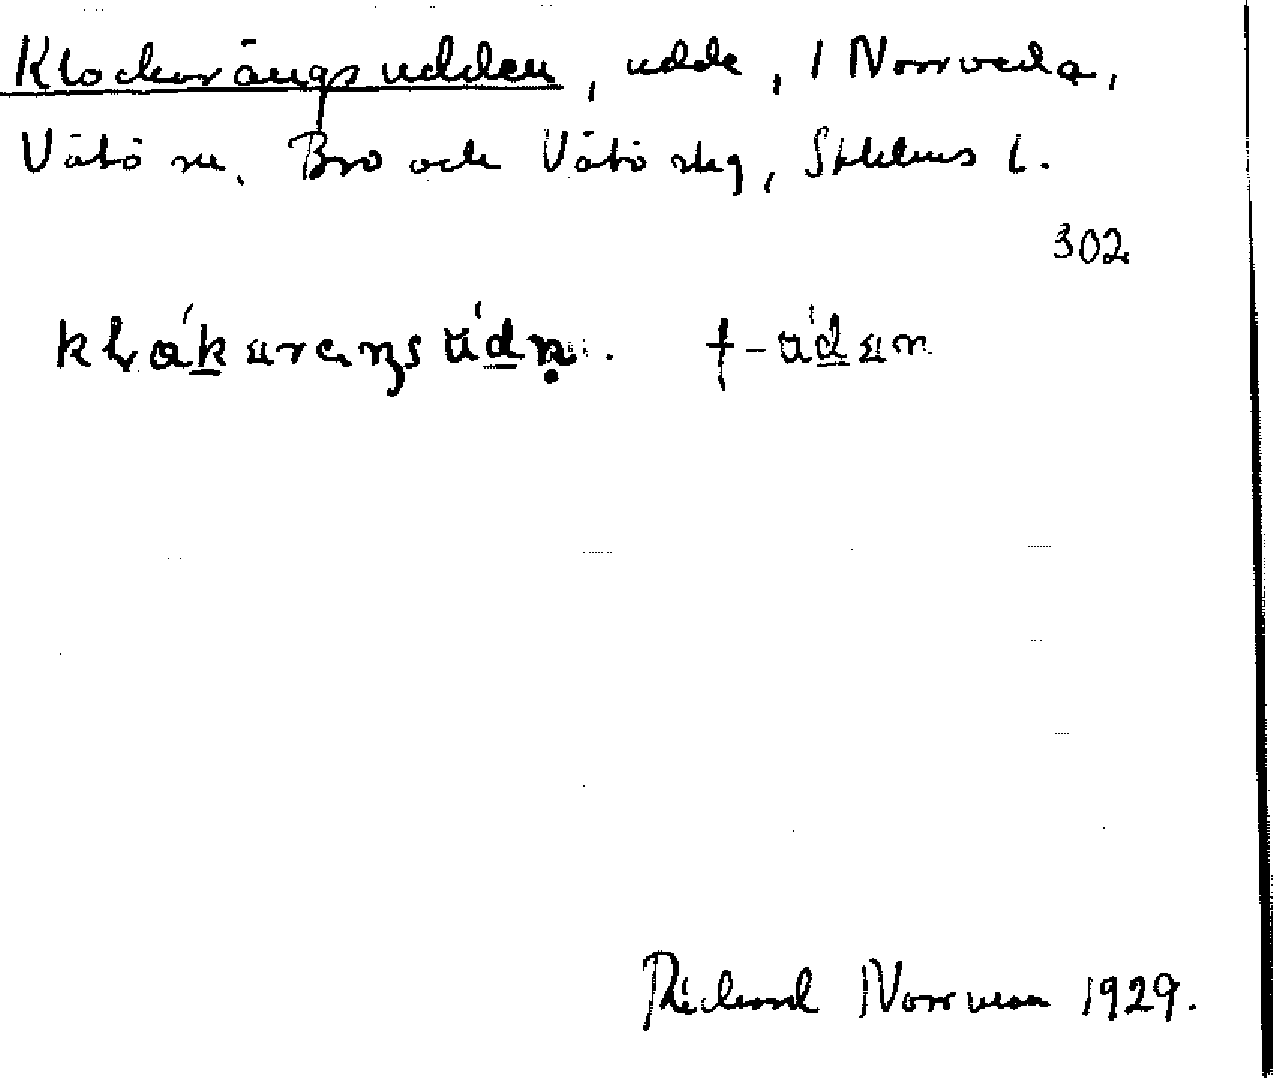 Klockarängsudden, udde, i Norrveda,
Vätö sn. Bro och Vätö skg, Sthlms l.
302
Richard Norrman 1929.